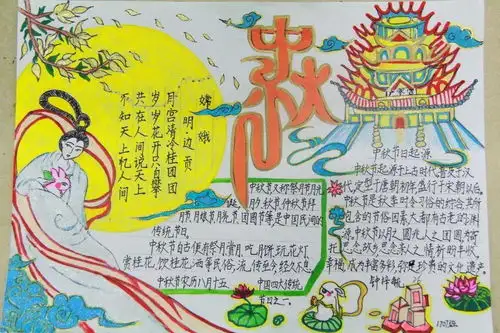 中秋
嫦娥
明·边贡
月宫清冷桂团团
岁岁花开只自攀
共在人间说天上
不知天上忆人间
中秋节又称祭月节、月光
诞、月夕、秋节、仲秋节、拜
月节、月娘节、月亮节、团圆节等,是中国民间的
传统节日。
中秋节自古便有祭月、赏月、吃月饼、玩花灯、
赏桂花、饮桂花酒等民俗,流传至今,经久不息。
中秋节农历八月十五
中国四大传统
节日之一。
中秋节日起源
中秋节起源于上古时代,普及于汉
代,定型于唐朝初年,盛行于宋朝以后。
中秋节是秋季时令习俗的综合,其所
包含的节俗因素,大都有古老的渊
源。中秋节以月之圆兆人之团圆,为寄
托思念故乡,思念亲人之情,祈盼丰收、
幸福,成为丰富多彩、弥足珍贵的文化遗产。